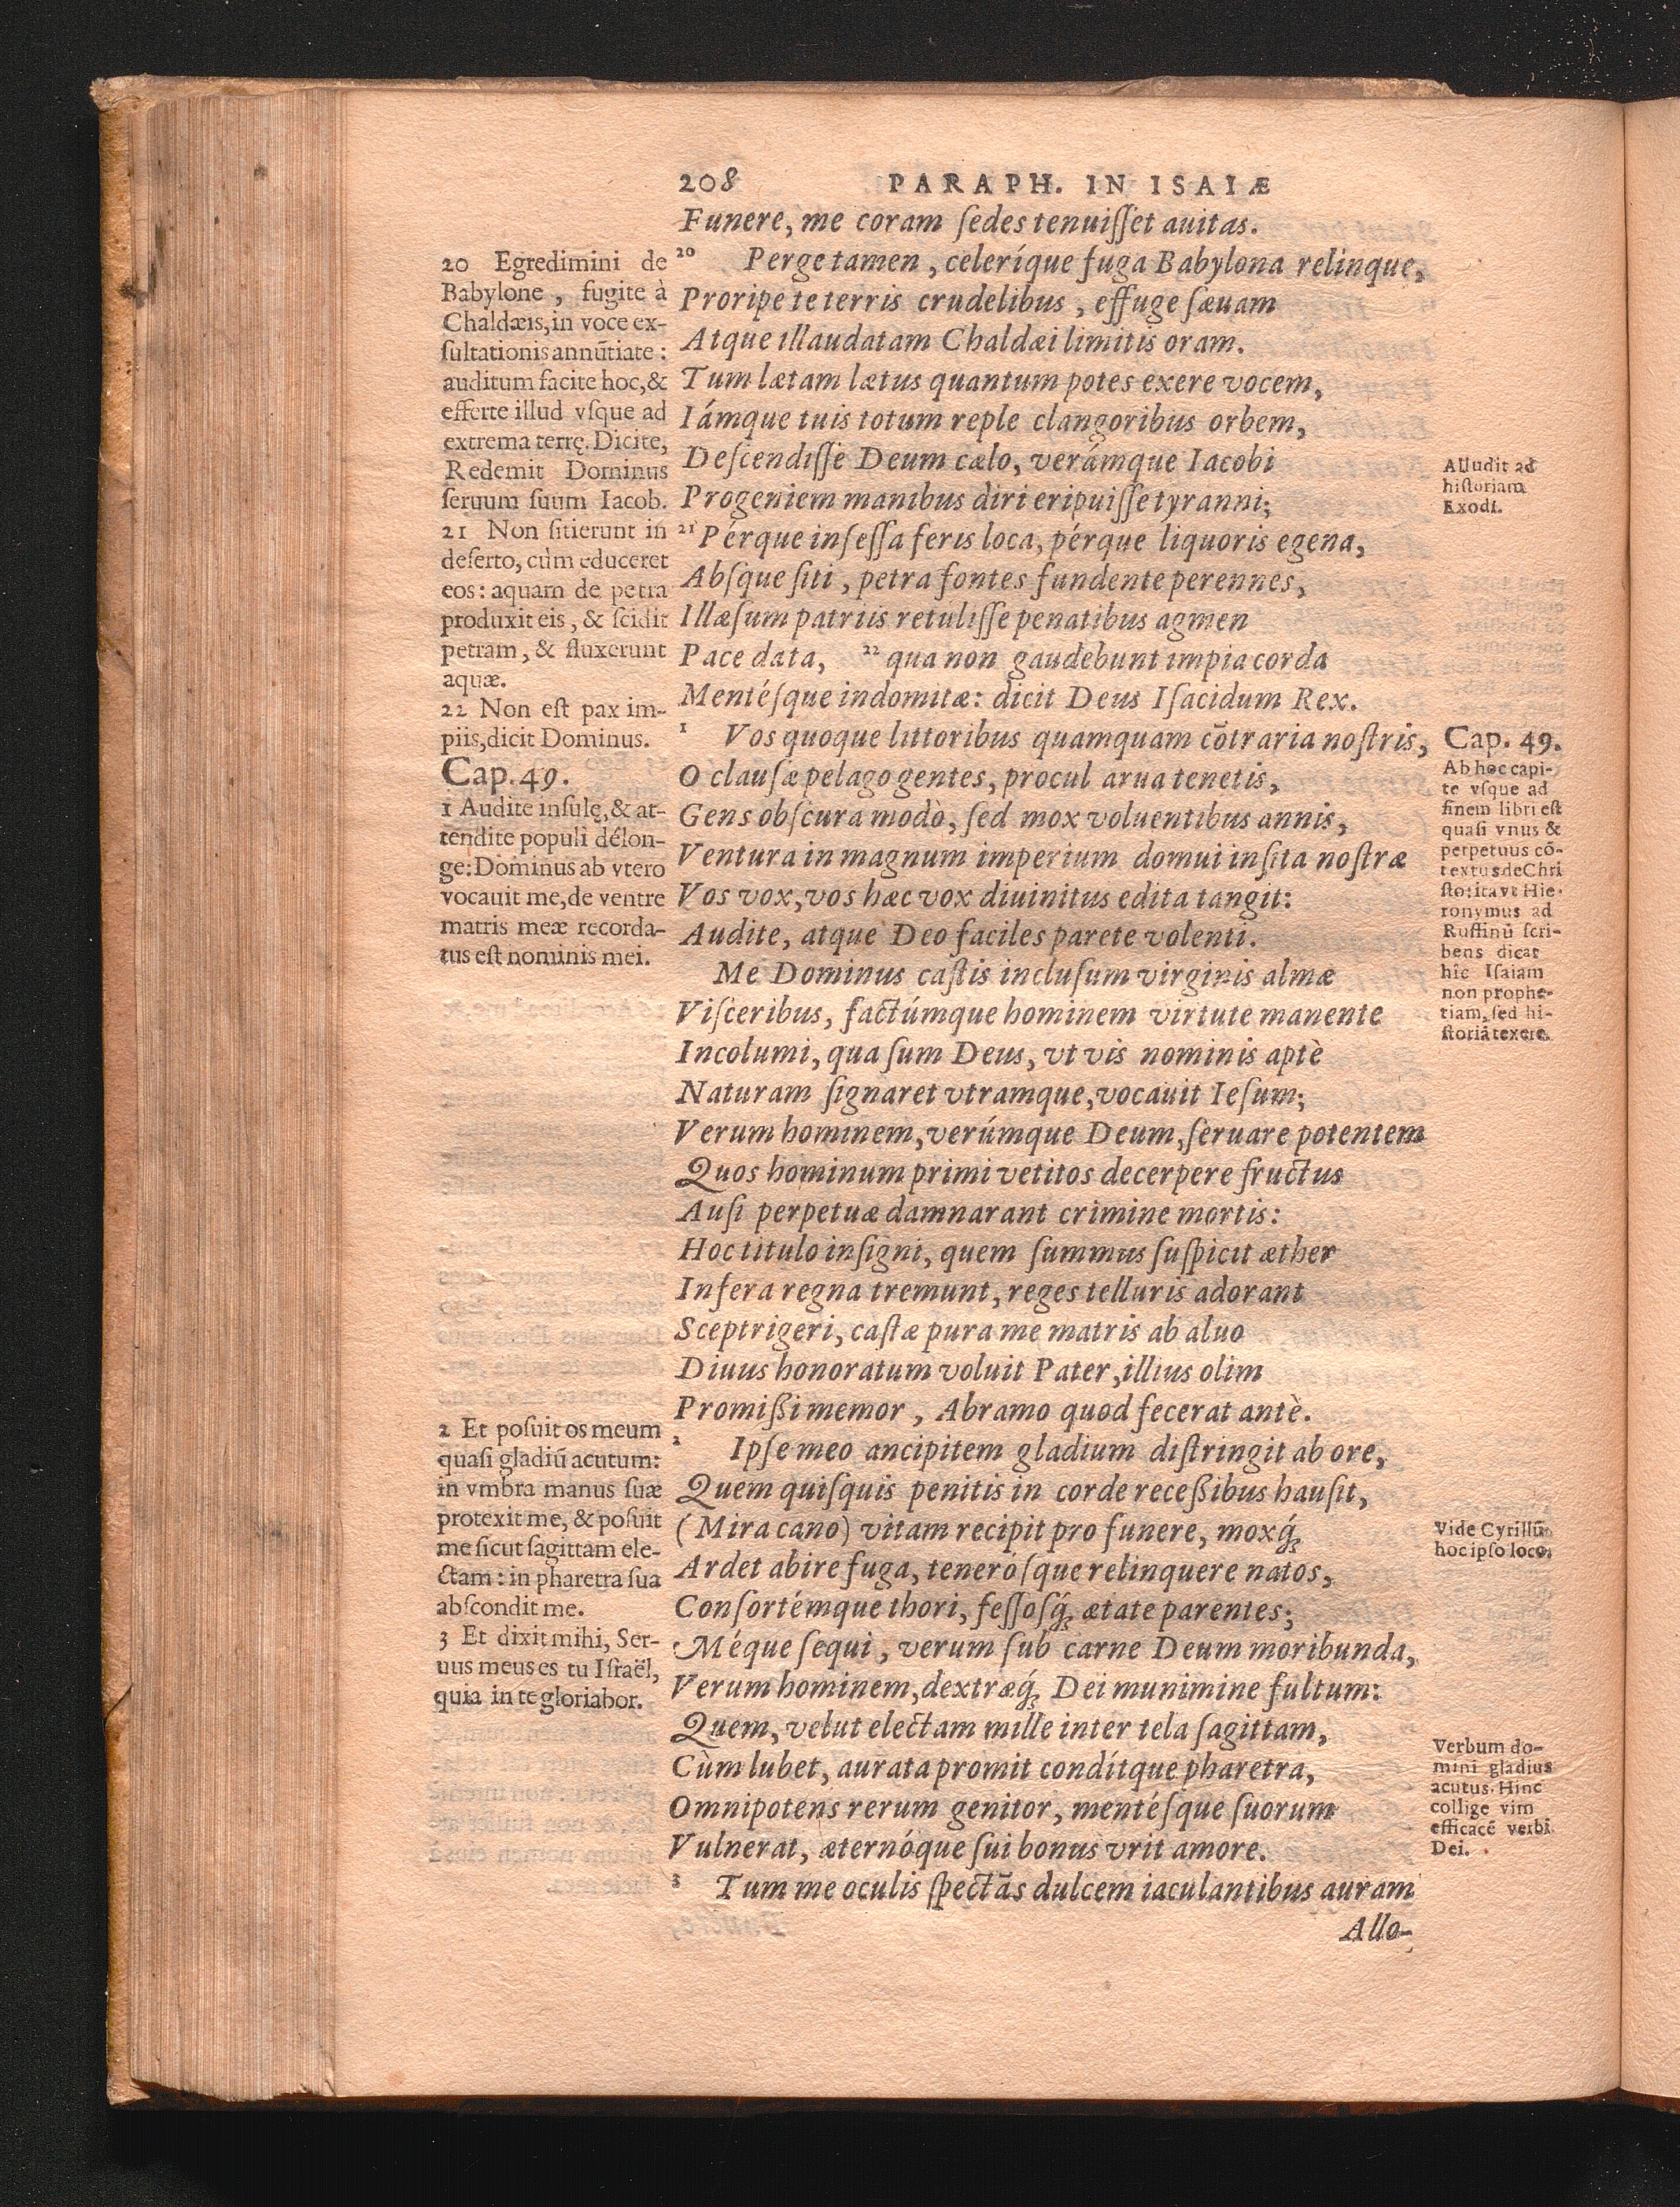 208 PARAPH. IN ISAIÆ
Funere, me coram ſedes tenuiſſet auitas.
²⁰ Perge tamen, celeríque fuga Babylona relinque,
Proripe te terris crudelibus, effuge ſæuam
Atque illaudatam Chaldæi limitis oram.
Tum lætam lætus quantum potes exere vocem,
Iámque tuis totum reple clangoribus orbem,
Deſcendiſſe Deum cælo, verámque Iacobi
Progeniem manibus diri eripuiſſe tyranni;
²¹ Pérque inſeſſa feris loca, pérque liquoris egena,
Abſque ſiti, petra fontes fundente perennes,
Illæſum patriis retuliſſe penatibus agmen
Pace data, ²² qua non gaudebunt impia corda
Mentéſque indomitæ: dicit Deus Iſacidum Rex.
¹ Vos quoque littoribus quamquam cōtraria noſtris,
O clauſæ pelago gentes, procul arua tenetis,
Gens obſcura modò, ſed mox voluentibus annis,
Ventura in magnum imperium domui inſita noſtræ
Vos vox, vos hæc vox diuinitus edita tangit:
Audite, atque Deo faciles parete volenti.
Me Dominus caſtis incluſum virginis almæ
Viſceribus, factúmque hominem virtute manente
Incolumi, qua ſum Deus, vt vis nominis aptè
Naturam ſignaret vtramque, vocauit Ieſum;
Verum hominem, verúmque Deum, ſeruare potentem
Quos hominum primi vetitos decerpere fructus
Auſi perpetuæ damnarant crimine mortis:
Hoc titulo inſigni, quem ſummus ſuſpicit æther
Infera regna tremunt, reges telluris adorant
Sceptrigeri, caſtæ pura me matris ab aluo
Diuus honoratum voluit Pater, illius olim
Promißi memor, Abramo quod fecerat antè.
² Ipſe meo ancipitem gladium diſtringit ab ore,
Quem quiſquis penitis in corde receßibus hauſit,
(Mira cano) vitam recipit pro funere, moxq́;
Ardet abire fuga, teneróſque relinquere natos,
Conſortémque thori, feſſoſq́; ætate parentes;
Méque ſequi, verum ſub carne Deum moribunda,
Verum hominem, dextræq́; Dei munimine fultum:
Quem, velut electam mille inter tela ſagittam,
Cùm lubet, aurata promit condítque pharetra,
Omnipotens rerum genitor, mentéſque ſuorum
Vulnerat, æternóque ſui bonus vrit amore.
³ Tum me oculis ſpectās dulcem iaculantibus auram
Allo-
20 Egredimini de
Babylone, fugite à
Chaldæis, in voce ex-
ſultationis annūtiate:
auditum facite hoc, &
efferte illud vſque ad
extrema terrę. Dicite,
Redemit Dominus
ſeruum ſuum Iacob.
21 Non ſitierunt in
deſerto, cùm educeret
eos: aquam de petra
produxit eis, & ſcidit
petram, & fluxerunt
aquæ.
22 Non eſt pax im-
piis, dicit Dominus.
Cap. 49.
1 Audite inſulę, & at-
tendite populi délon-
ge: Dominus ab vtero
vocauit me, de ventre
matris meæ recorda-
tus eſt nominis mei.
2 Et poſuit os meum
quaſi gladiū acutum:
in vmbra manus ſuæ
protexit me, & poſuit
me ſicut ſagittam ele-
ctam: in pharetra ſua
abſcondit me.
3 Et dixit mihi, Ser-
uus meus es tu Iſraël,
quia in te gloriabor.
Alludit ad
hiſtoriam
Exodi.
Cap. 49.
Ab hoc capi-
te vſque ad
finem libri eſt
quaſi vnus &
perpetuus cō-
textus de Chri
ſto: ita vt Hie-
ronymus ad
Ruffinū ſcri-
bens dicat
hîc Iſaiam
non prophe-
tiam, ſed hi-
ſtoriā texere.
Vide Cyrillū
hoc ipſo loco.
Verbum do-
mini gladius
acutus. Hinc
collige vim
efficacē verbi
Dei.